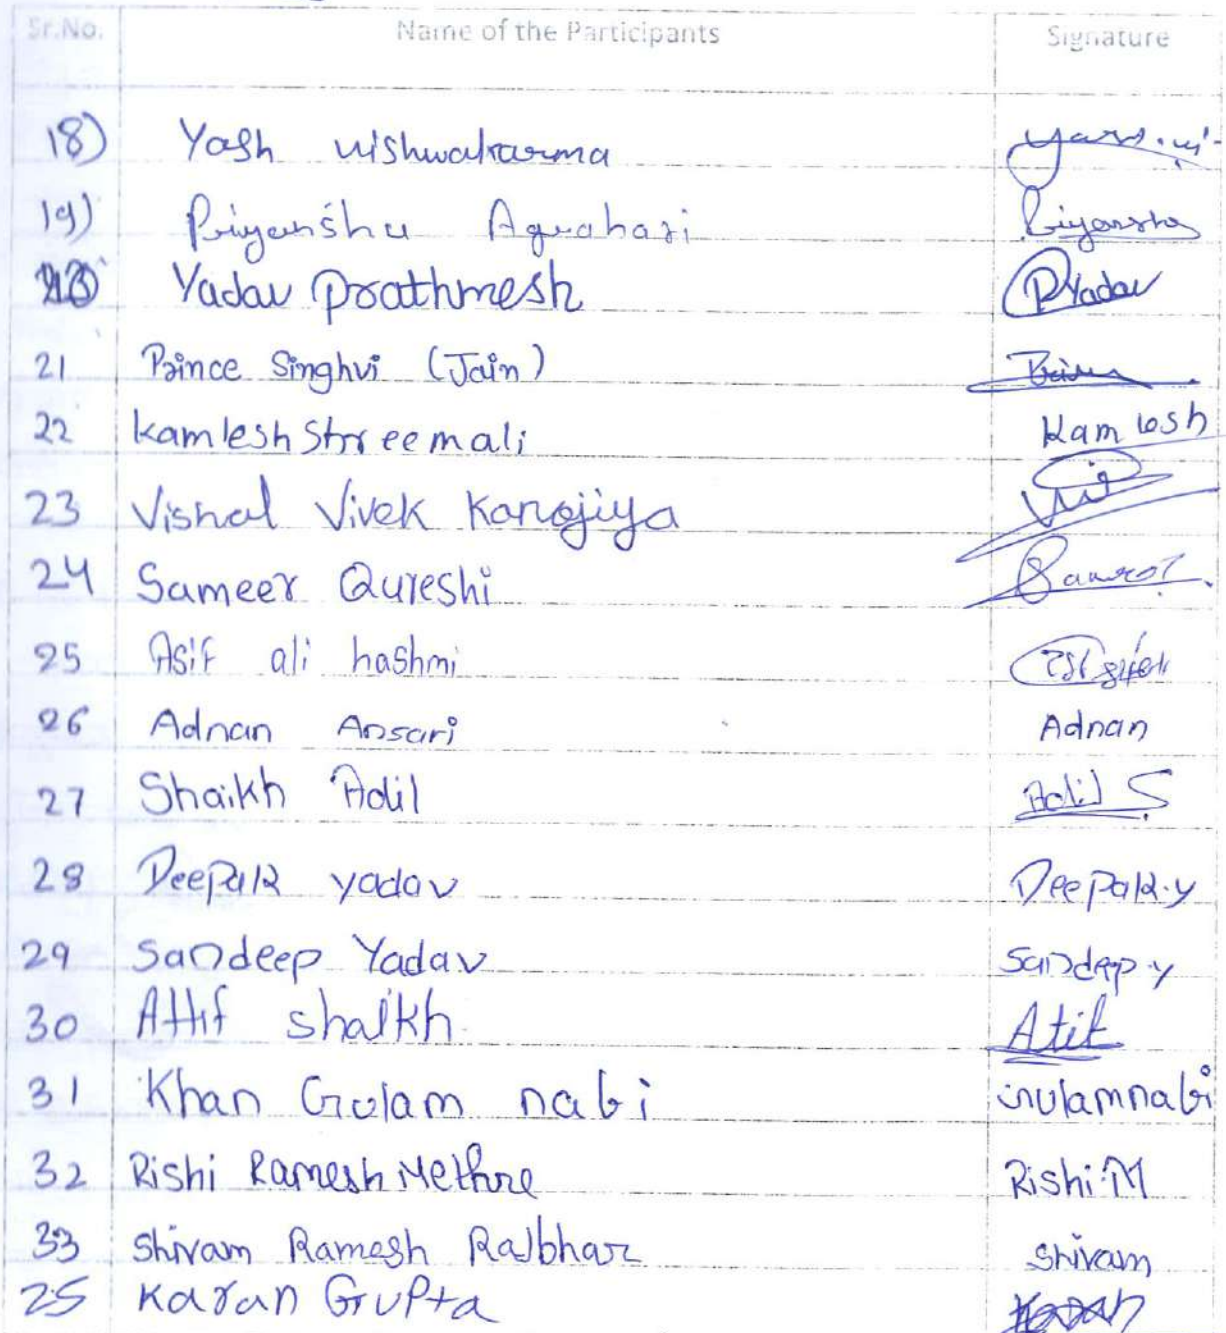 Sr.No. Name of the Participants Signature
18) Yash vishwakarma
19) Priyanshu Agrahari Priyanshu
Yadav Prathmesh PYadav
21 Prince Singhvi (Jain)
22 Kamlesh Shreemali Kamlesh
23 Vishal Vivek Kanojiya
24 Sameer Qureshi
25 Asif ali hashmi
26 Adnan Ansari Adnan
27 Shaikh Adil Adil S
28 Deepak yadav Deepak.y
29 Sandeep Yadav Sandeep.y
30 Attif shaikh Atif
31 Khan Gulam nabi Gulamnabi
32 Rishi Ramesh Methre Rishi.M
33 Shivam Ramesh Rajbhar Shivam
25 Karan Gupta